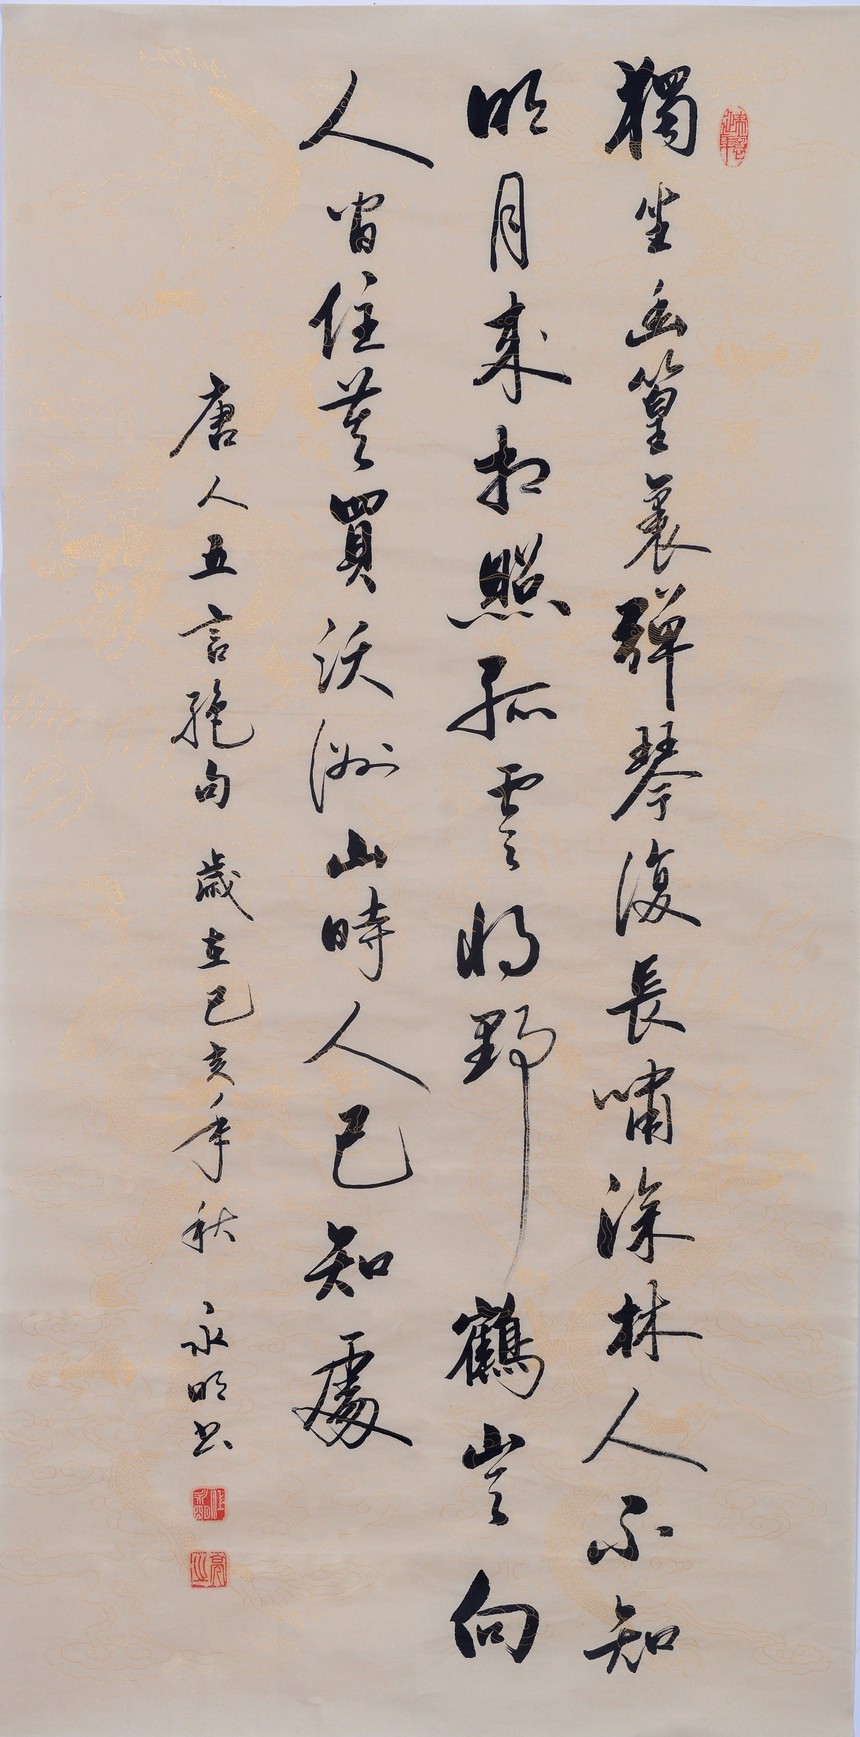 獨坐幽篁裏彈琴復長嘯深林人不知
明月来相照孤雲将野鶴豈向
人間住莫買沃洲山時人已知處
唐人五言絶句 歲在己亥年秋 永明书